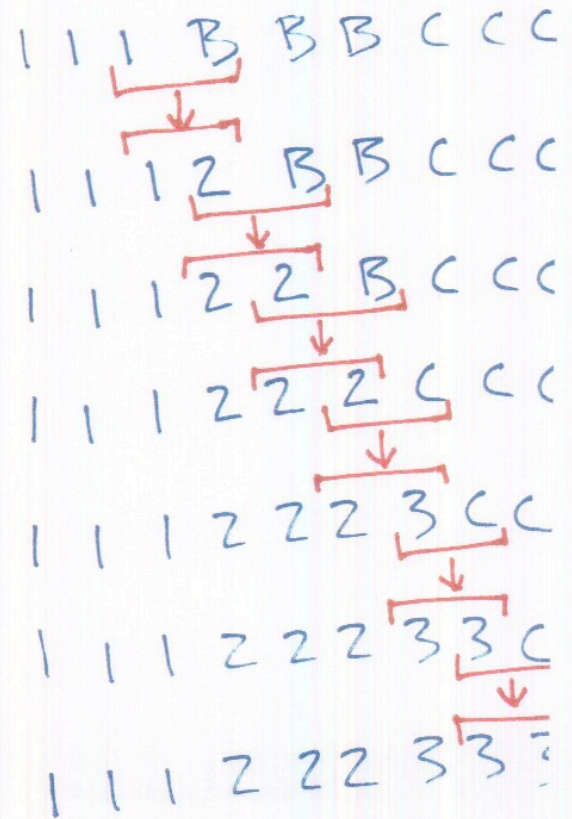 1 1 1 B B B C C C
1 1 1 2 B B C C C
1 1 1 2 2 B C C C
1 1 1 2 2 2 C C C
1 1 1 2 2 2 3 C C
1 1 1 2 2 2 3 3 C
1 1 1 2 2 2 3 3